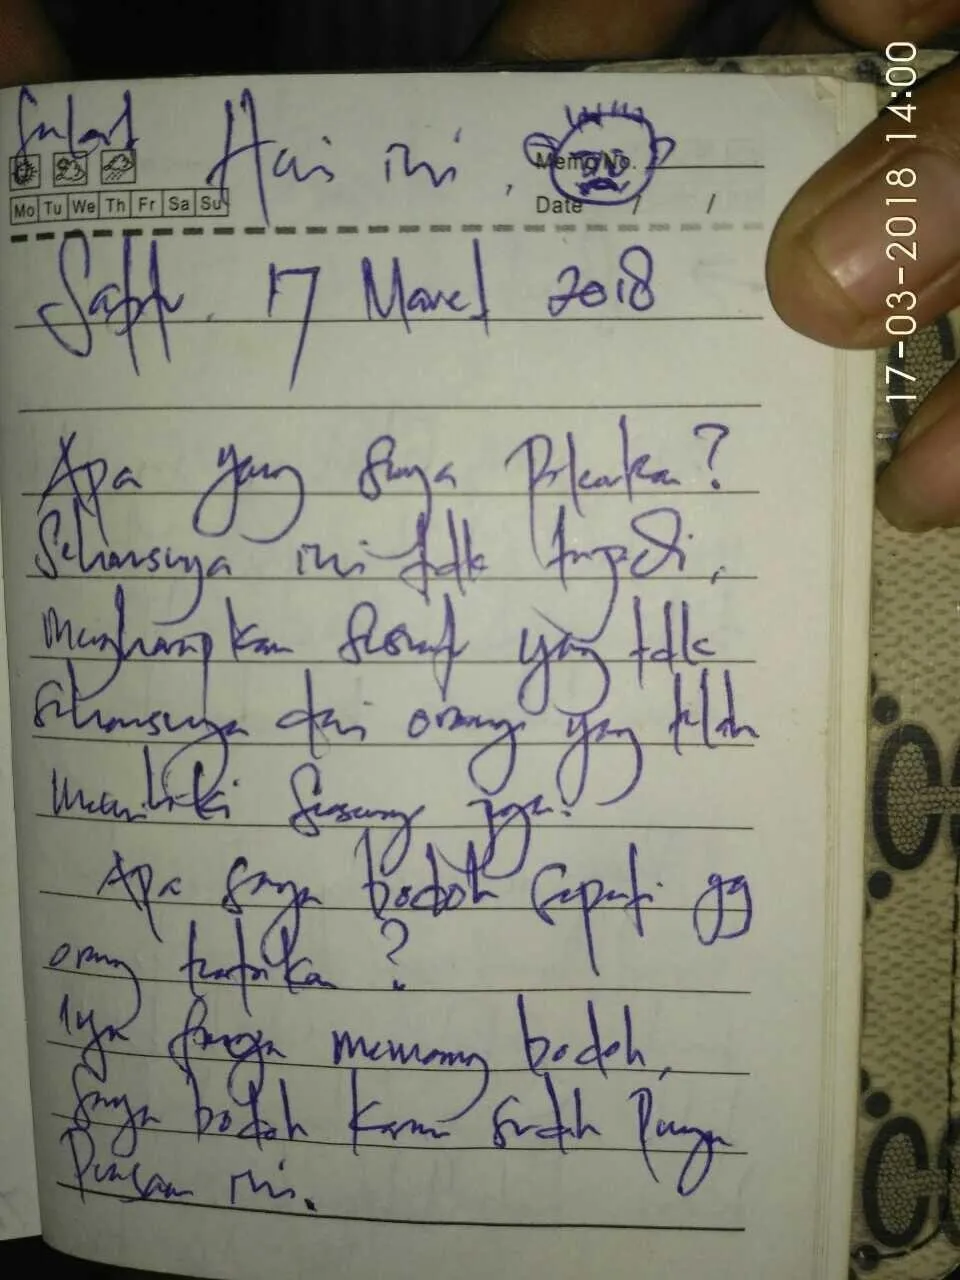 Hai ini,
Memo No.
Mo Tu We Th Fr Sa Su
Date / /
17 Maret 2018
Apa yang saya Pikirkan?
Seharusnya ini tdk terjadi,
mengharapkan sesuatu yang tdk
seharusnya dari orang yang telah
memiliki seseorang juga.
Apa saya bodoh seperti yg
orang katakan?
Iya saya memang bodoh,
saya bodoh karena sudah Punya
Perasaan ini.
17-03-2018 14:00